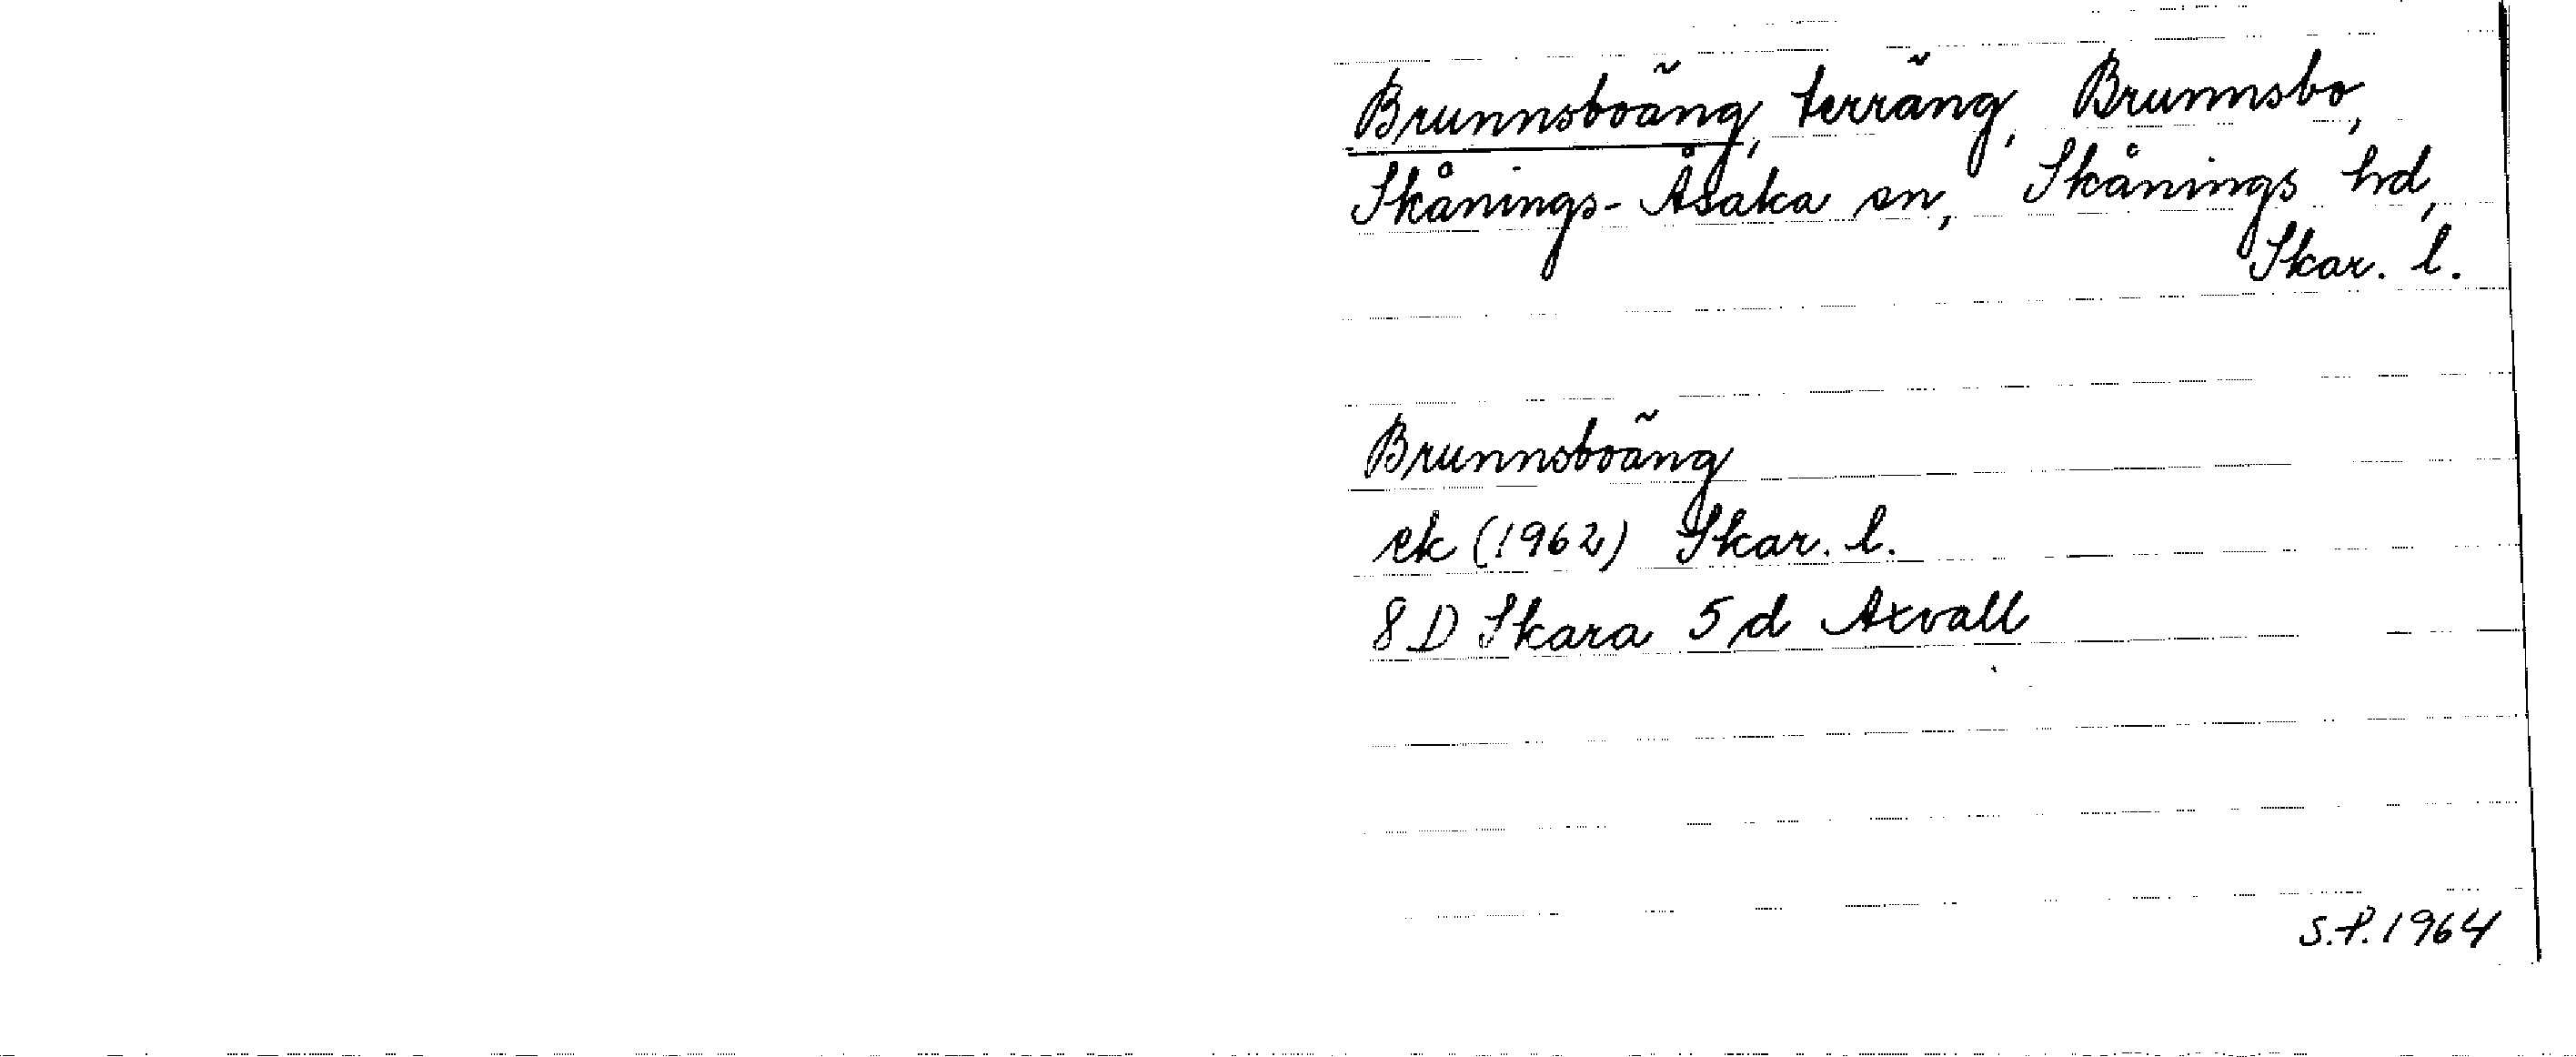 Brunnsboäng, terräng, Brunnsbo,
Skånings-Åsaka sn, Skånings hd,
Skar. l.
Brunnsboäng
ek (1962) Skar. l.
8 D Skara 5 d Axvall
S.P. 1964